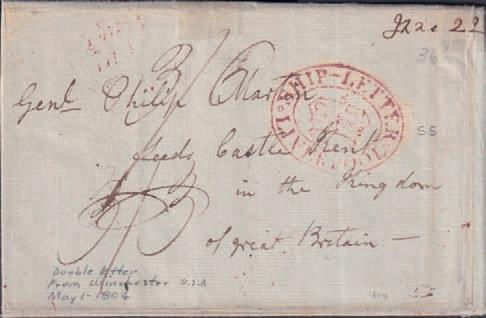 Genl. Philip Martin
Leeds Castle Kent
in the Kingdom
of great Britain —
SHIP-LETTER
LIVERPOOL
36
SS
Double letter
From Winchester U.S.A
May 1-1804